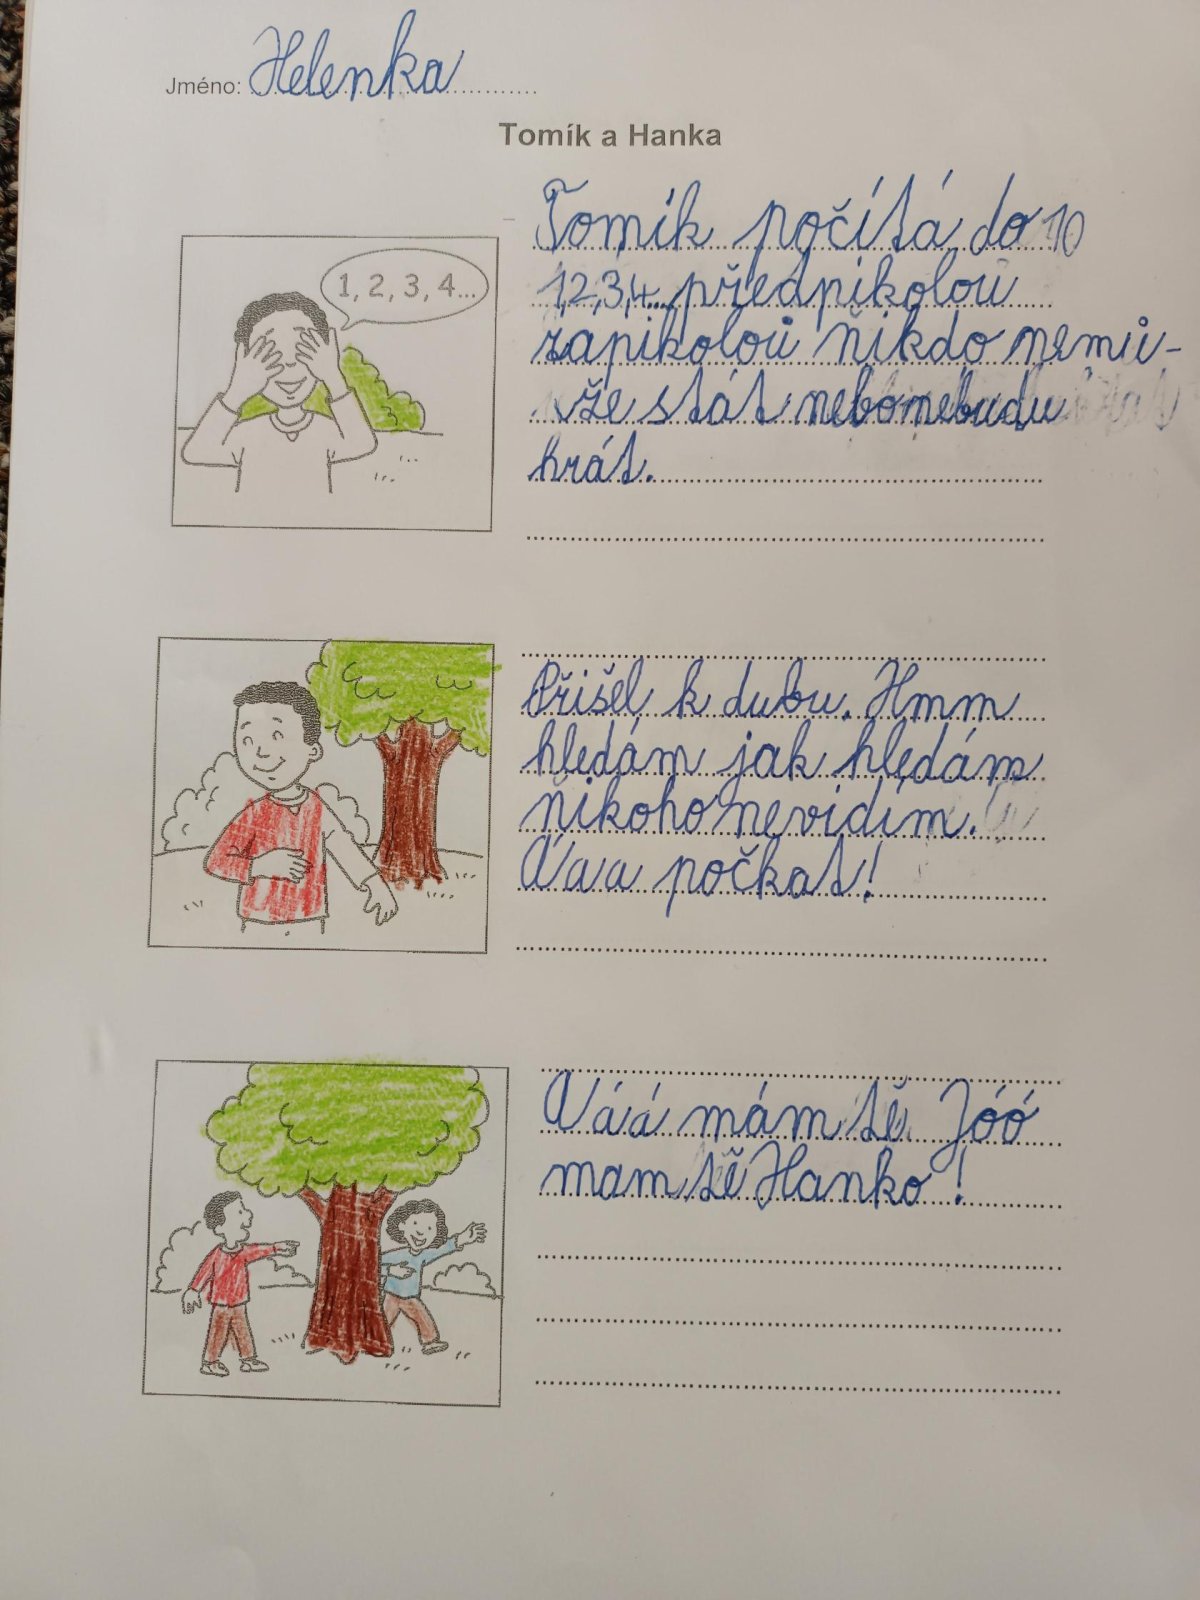 Jméno: Helenka
Tomík a Hanka
1, 2, 3, 4...
Tomík počítá do 10
1,2,3,4... předpikolou
zapikolou ňikdo nemů-
že stát nebonebudu
hrát.
Přišel k dubu. Hmm
hledám jak hledám
ňikoho nevidím.
Aaa počkat!
Aáá mám tě Jóó
mam tě Hanko!